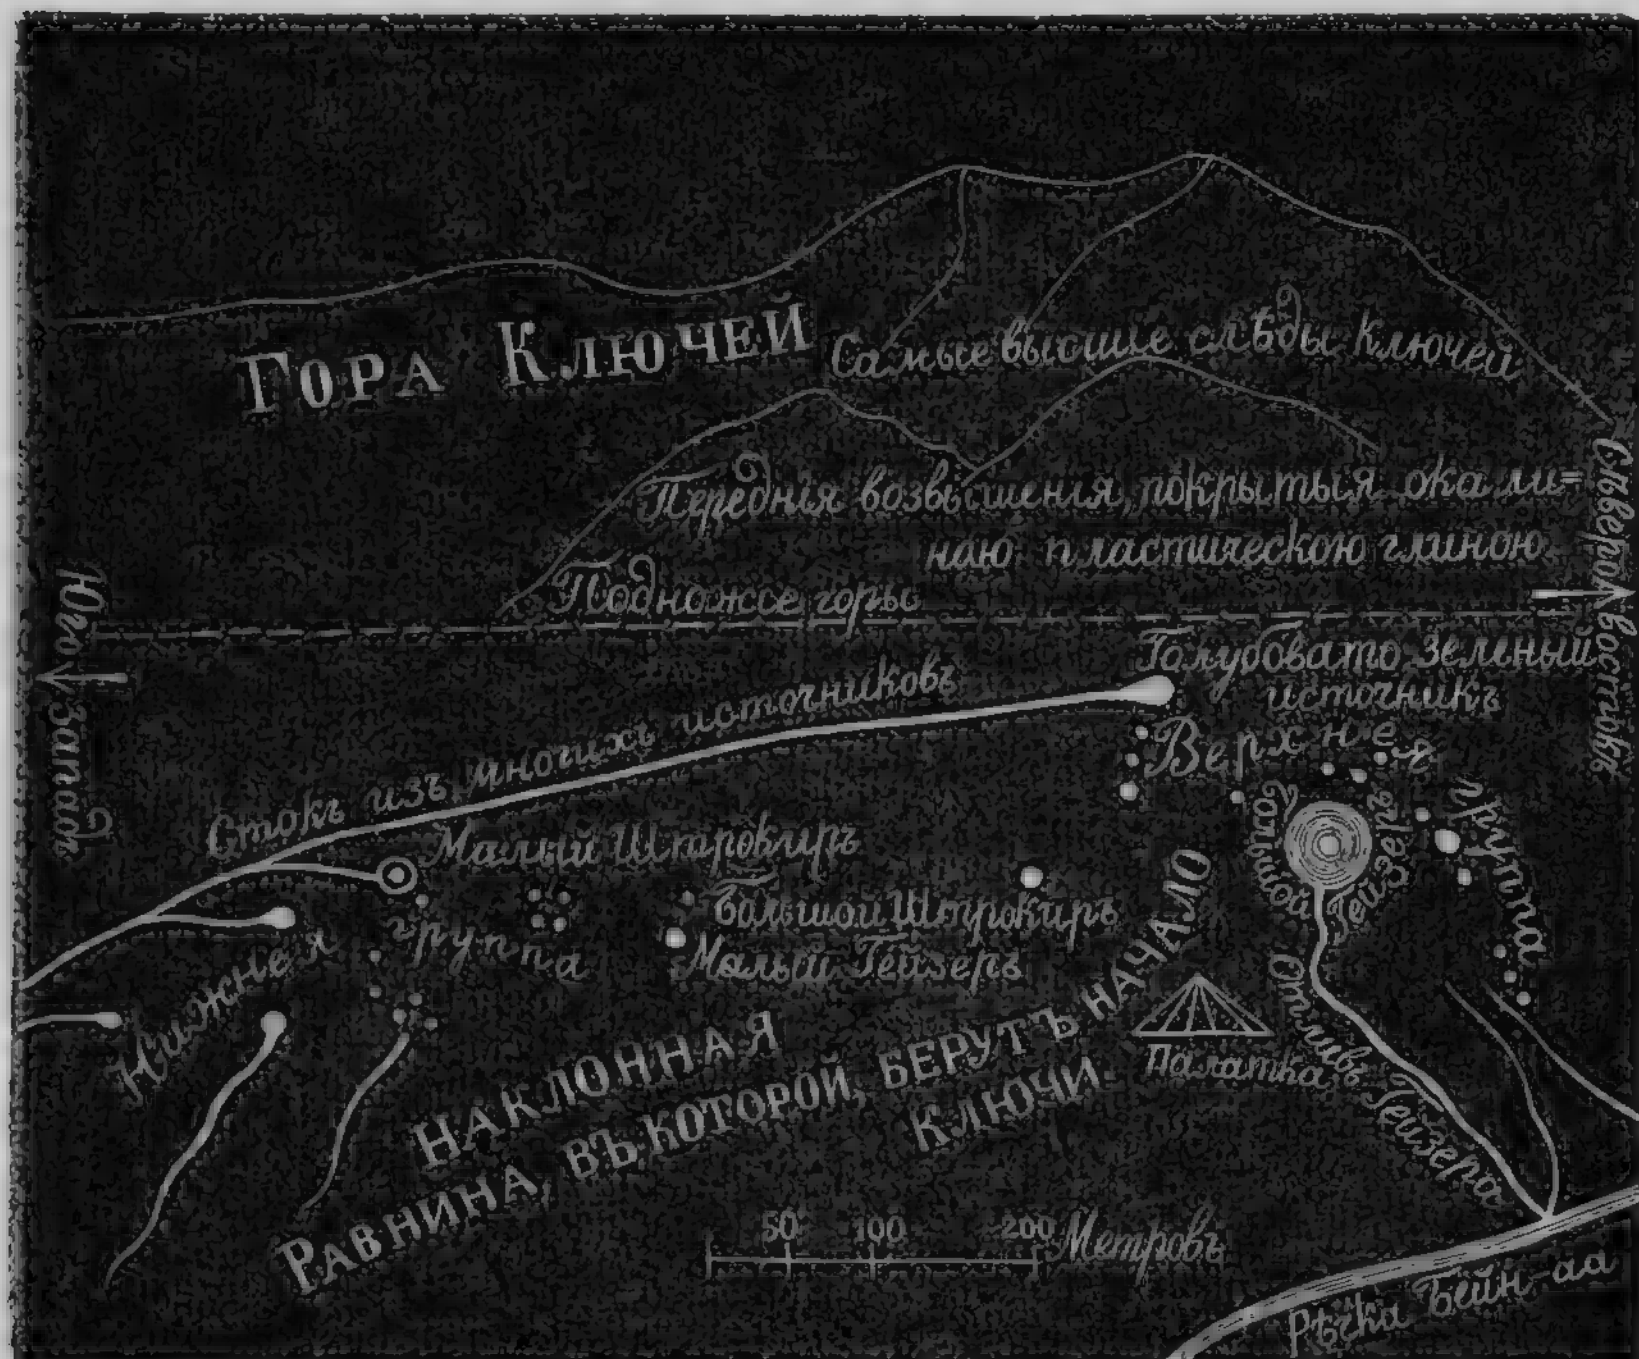 Гора Ключей
Самые высшіе слѣды ключей
Переднія возвышенія, покрытыя окали=
ною пластическою глиною
Подножье горы
Сѣверовостокъ
Югозападъ
Голубовато зеленый
источникъ
Стокъ изъ многихъ источниковъ
Верхняя
группа
Большой Гейзеръ
Малый Штрокиръ
Большой Штрокиръ
Малый Гейзеръ
Нижняя
группа
Палатка
Отливъ Гейзера
НАКЛОННАЯ
РАВНИНА, ВЪ КОТОРОЙ БЕРУТЪ НАЧАЛО
КЛЮЧИ
50 100 200 Метровъ
Рѣчка Бейн-аа